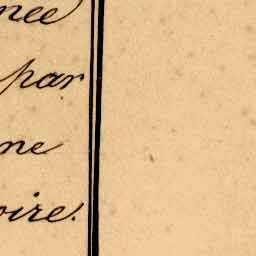 née
par
ne
oire.